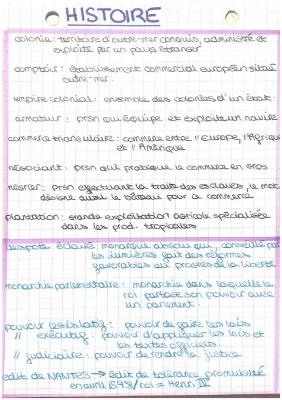 HISTOIRE
colonie : territoire d'outre-mer conquis, administré et
exploité par un pays étranger
comptoir : établissement commercial européen situé
outre-mer.
empire colonial : ensemble des colonies d'un état.
armateur : prsn qui équipe et exploite un navire
commerce triangulaire : commerce entre l'Europe, l'Afrique
et l'Amérique
négociant : prsn qui pratique le commerce en gros
négrier : prsn effectuant la traite des esclaves, le mot
désigne aussi le bateau pour ce commerce
plantation : grande exploitation agricole spécialisée
dans les prod. tropicales
despote éclairé : monarque absolu qui, conseillé par
les lumières fait des réformes
favorables au progrès de la liberté
monarchie parlementaire : monarchie dans laquelle le
roi partage son pouvoir avec
un parlement.
pouvoir législatif : pouvoir de faire les lois
// exécutif : pouvoir d'appliquer les lois et
les textes officiels.
// judiciaire : pouvoir de rendre la justice
edit de NANTES → édit de tolérance promulgué
en avril 1598 / roi = Henri IV